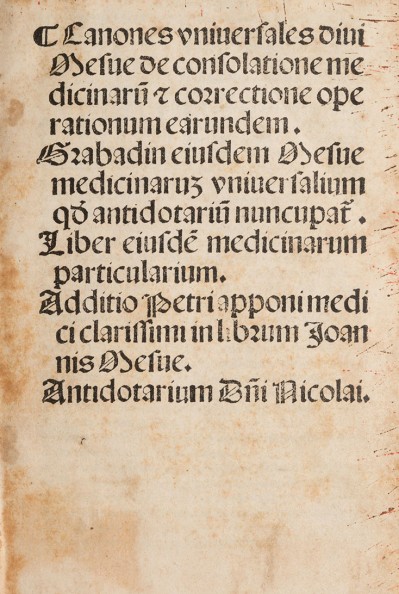 ¶ Canones vniuersales diui
Mesue de consolatione me
dicinarũ ⁊ correctione ope
rationum earundem.
Grabadin eiusdem Mesue
medicinaruꝫ vniuersalium
qđ antidotariũ nuncupat̃.
Liber eiusdẽ medicinarum
particularium.
Additio Petri apponi medi
ci clarissimi in librum Joan
nis Mesue.
Antidotarium Dñi Nicolai.